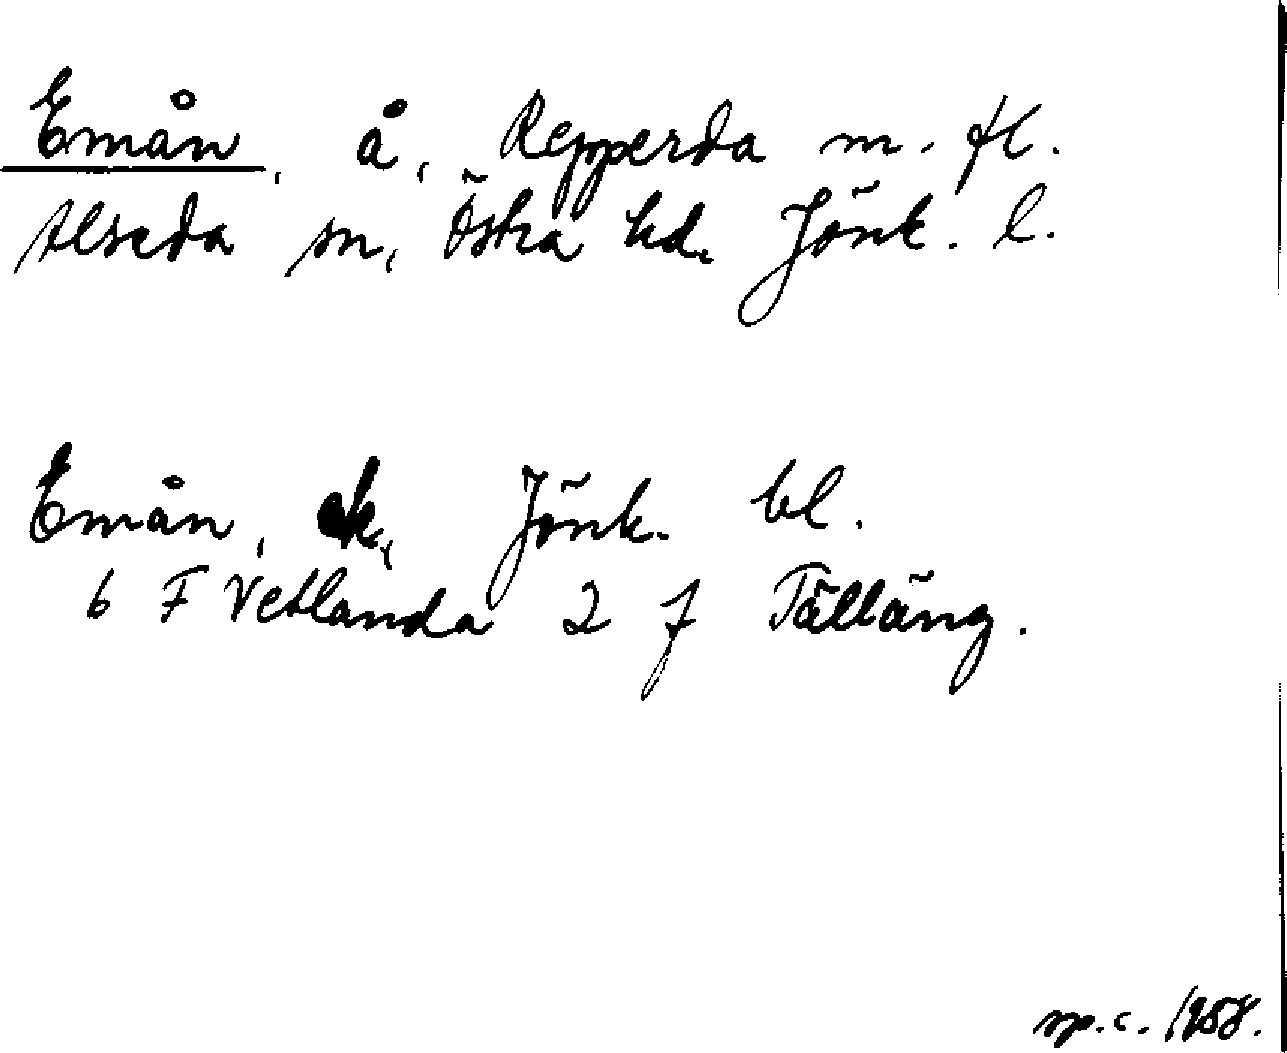 Emån, å, Repperda m. fl.
Alseda sn, Östra hd. Jönk. l.
Emån, ek, Jönk. bl.
6 F Vetlanda 2 f Tälläng.
op.c. 1958.